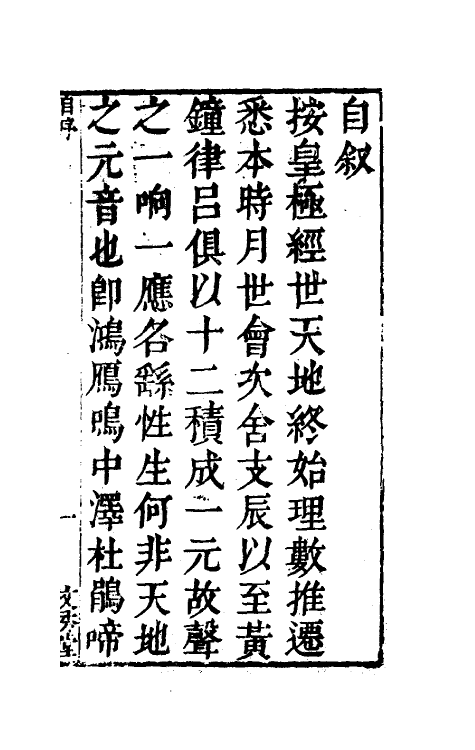 自叙
按皇極經世天地終始理數推遷
悉本時月世會次舍支辰以至黃
鐘律呂俱以十二積成一元故聲
之一响一應名繇性生何非天地
之元音也卽鴻鴈鳴中澤杜鵑啼
自序
一